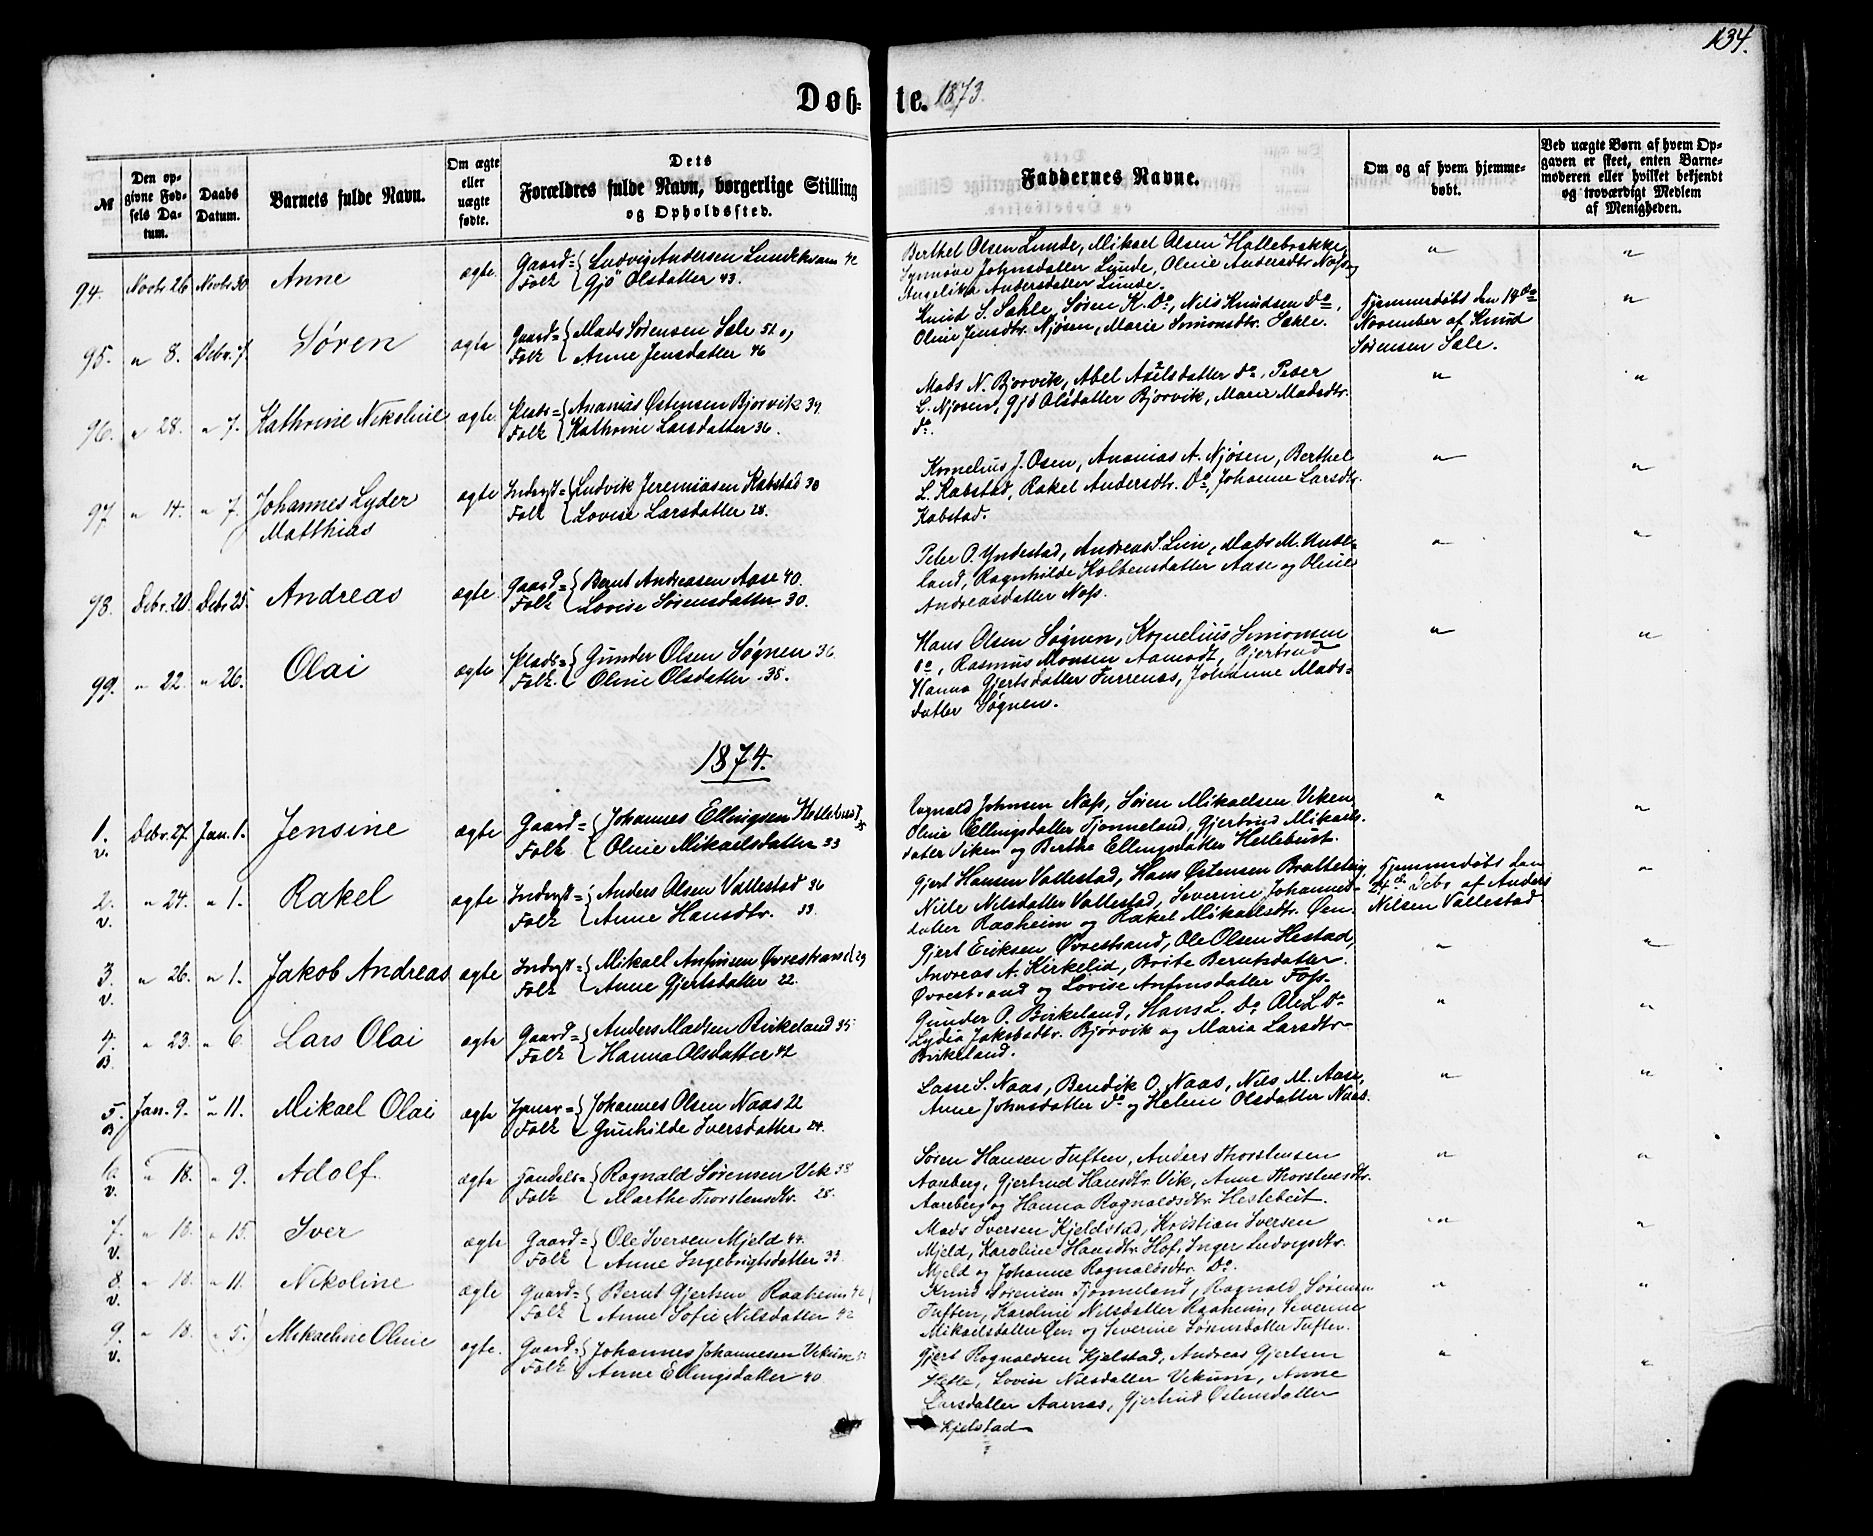 134.
Døb-te. 1873.
№
Den op-
givne Fød-
sels Da-
tum.
Daabs
Datum.
Barnets fulde Navn.
Om ægte
eller
uægte
fødte.
Dets
Forældres fulde Navn, borgerlige Stilling
og Opholdssted.
Faddernes Navne.
Om og af hvem hjemme-
døbt.
Ved uægte Børn af hvem Op-
gaven er skeet, enten Barne-
moderen eller hvilket bekjendt
og troværdigt Medlem
af Menigheden.
94. Novbr 26 Novbr 30 Anne ægte Gaard= Ludvig Andersen Lundekvam 42
Folk Gjö Olsdatter 43.
Berthel Olsen Lunde, Mikael Olsen Hallebrekke,
Synnöve Johnsdatter Lunde, Oline Andersdtr Nass,
Angelika Andersdatter Lunde.
" "
95. " 8. Debr. 7. Søren ægte Gaard= Mads Sørensen Sæle 51
Folk Anne Jensdatter 46
Knud S. Sæhle, Søren K. Do, Nils Knudsen do,
Oline Jensdtr. Njøsen, Marie Simonsdtr. Sæhle.
Hjemmedøbt den 19de
November af Knud
Sørensen Sæle.
"
96. " 28. " 7. Kathrine Nikoline ægte Plads= Ananias Østensen Bjorvik 34.
Folk Kathrine Larsdatter 36.
Mads N. Bjorvik, Abel Axelsdatter do, Peder
L. Njøsen, Gjö Olsdatter Bjorvik, Marie Madsdtr.
do.
" "
97 " 14. " 7. Johannes Lyder
Matthias
ægte Inderst= Ludvik Jeremiasen Kabstad 30
Folk Lovise Larsdatter 28.
Kornelius J. Osen, Ananias A. Njøsen, Berthel
L. Kabstad, Rakel Andersdtr. Do, Johanne Larsdtr.
Kabstad.
" "
98. Debr. 20. Debr 25. Andreas ægte Gaard= Bernt Andreasen Aase 40.
Folk Lovise Sørensdatter 30.
Peter O. Yndestad, Andreas S. Lien, Mads M.
land, Ragnhilde Kolbensdatter Aase og Oline
Andreasdatter Nass.
" "
99. " 22. " 26. Olai ægte Plads= Gunder Olsen Søgnen 36.
Folk Oline Olsdatter 38.
Hans Olsen Søgnen, Kornelius Simonsen
do, Rasmus Monsen Aamodt, Gjertrud
Hanna Gjertsdatter Furrenas, Johanne Mads-
datter Søgnen.
" "
1874.
1. v. Debr. 27. Jan. 1. Jensine ægte Gaard= Johannes Ellingsen Hellebust 35
Folk Oline Mikaelsdatter 33
Ragnald Johnsen Nass, Søren Mikaelsen Viken
Oline Ellingsdatter Tjonneland, Gjertrud Mikaels-
datter Viken og Berthe Ellingsdatter Hellebust.
" "
2. v. " 24. " 1. Rakel ægte Inderst= Anders Olsen Vallestad 36
Folk Anne Hansdtr. 33.
Gjert Hansen Vallestad, Hans Østensen Bratteteig
Nille Nilsdatter Vallestad, Severine Johannes-
datter Raaheim og Rakel Mikaelsdtr. Øen
Hjemmedøbt den
24de Debr af Anders
Nilsen Vallestad
"
3. v. " 26. " 1. Jakob Andreas ægte Inderst= Mikael Anfinsen Øvrestrand 29
Folk Anne Gjertsdatter 22.
Gjert Eriksen Øvrestrand, Ole Olsen Hestad,
Andreas A. Kirkelid, Brite Berntsdatter
Øvrestrand og Lovise Anfinsdatter Foss.
" "
4. B. " 23. " 6. Lars Olai ægte Gaard= Anders Madsen Birkeland 35
Folk Hanna Olsdatter 42
Gunder O. Birkeland, Hans L. Do, Ole L. Do
Lydia Jakobsdtr. Bjørvik og Maria Larsdtr.
Birkeland.
" "
5. B Jan. 9. " 11. Mikael Olai ægte Johannes Olsen Naas 22
Folk Gunhilde Iversdatter 24.
Lasse S. Naas, Bendik O. Naas, Nils M. Aase,
Anne Johnsdatter do og Helene Olsdatter Naas.
" "
6. v. " 18. " 9. Adolf ægte Handels= Ragnald Sørensen Vik 38
Folk Marthe Thorstensdtr. 28.
Søren Hansen Tuften, Anders Thorstensen
Aarberg, Gjertrud Hansdtr. Vik, Anne Thorstensdtr.
Aarberg og Hanna Ragnaldsdtr. Hestebeit.
" "
7. v. " 10. " 15. Iver ægte Gaard= Ole Iversen Mjeld 44.
Folk Anne Ingebrigtsdatter 33.
Mads Iversen Kjeldstad, Kristian Iversen
Mjeld, Karoline Hansdtr. Hof, Inger Ludvigsdtr.
Mjeld og Johanne Ragnaldsdtr. Do.
" "
8. v. " 18. " 11. Nikoline ægte Gaard= Bernt Gjertsen Raaheim 42
Folk Anne Sofie Nilsdatter 42
Knud Sørensen Tjønneland, Ragnald Sørensen
Tuften, Karoline Nilsdatter Raaheim, Severine
Mikaelsdatter Øen og Severine Sørensdatter Tuften.
" "
9. v. " 18. " 5. Mikaeline Oline ægte. Gaard= Johannes Johannesen Vekum
Folk Anne Ellingsdatter 40
Gjert Ragnaldsen Kjelstad, Andreas Gjertsen
Hette, Lovise Nilsdatter Vekum, Anne
Larsdatter Aarnas, Gjertrud Østensdatter
Kjelstad
" "